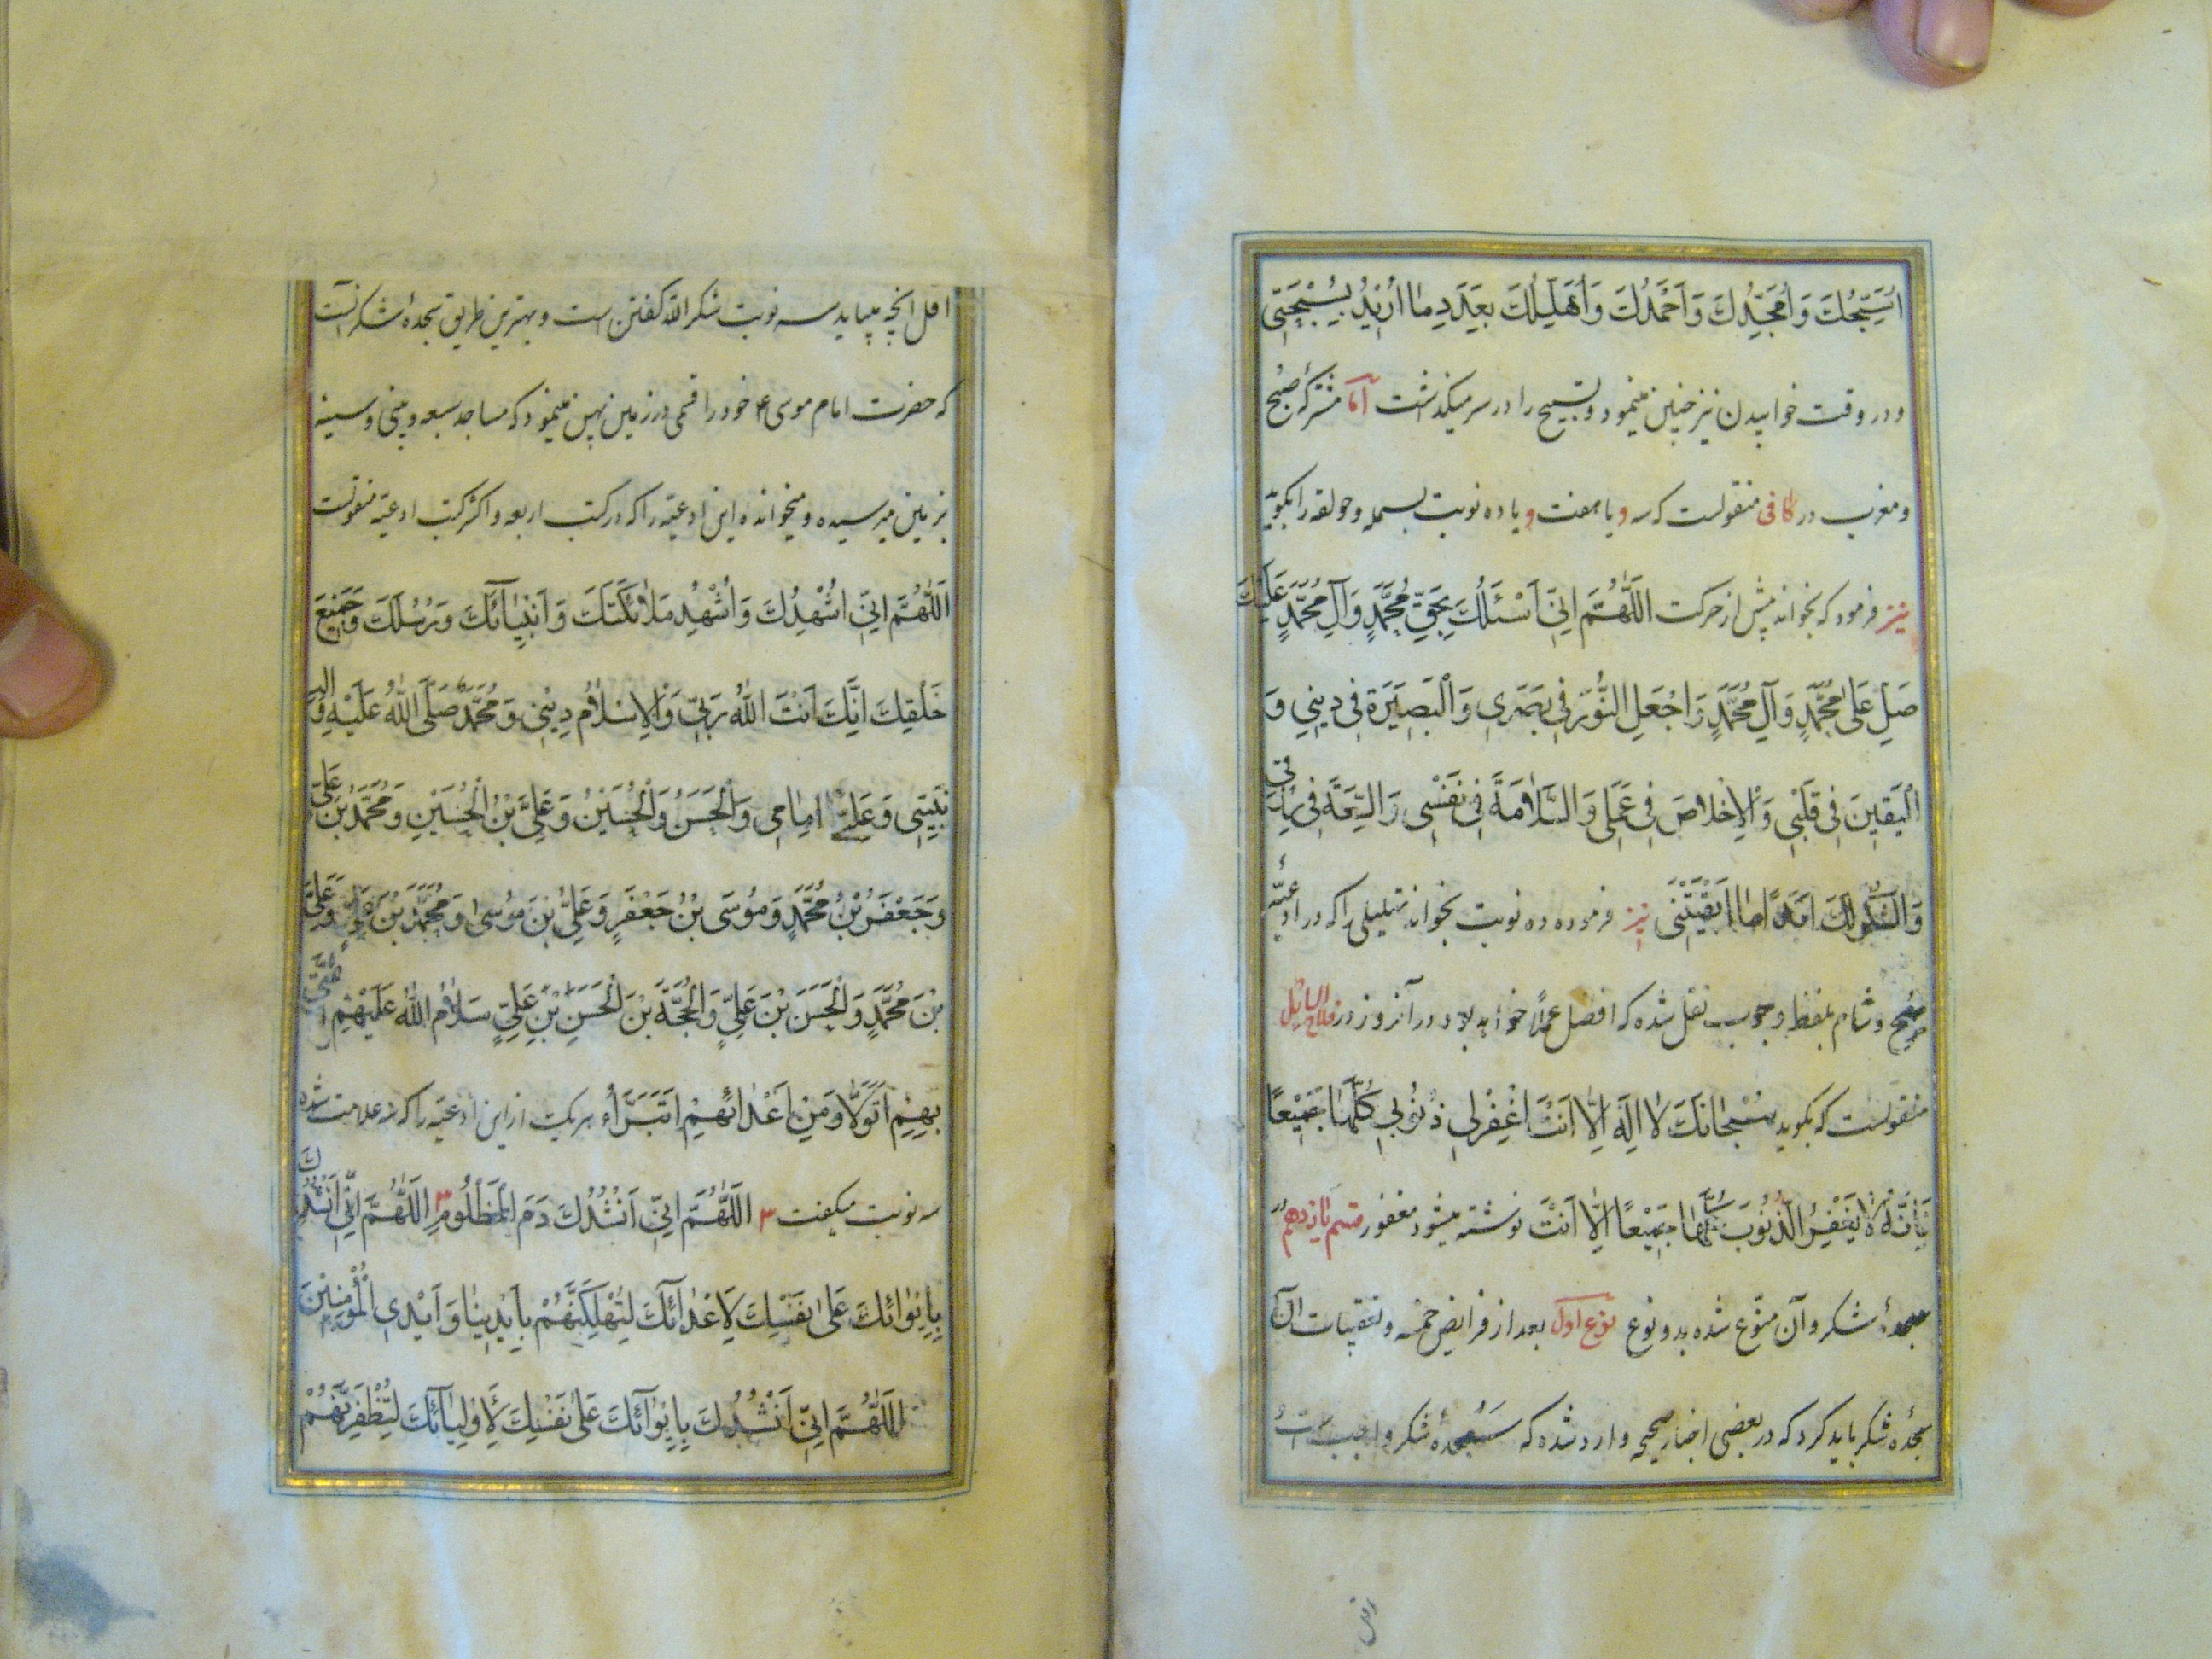 اُسَبِّحُكَ وَاُمَجِّدُكَ وَاَحْمَدُكَ وَاُهَلِّلُكَ بِعَدَدِ ما اُرِيْدُ بِسُبْحَتِى
ودر وقت خوابیدن نیز چنین مینمود و تسبیح را در سر میگذاشت اما مشترکهٔ صبح
و مغرب در کافی منقولست که سه و یا هفت و یا ده نوبت بسمله و حولقه را بگوید
نیز فرمود که بخواند پیش از حرکت اَللّٰهُمَّ اِنِّى اَسْئَلُكَ بِحَقِّ مُحَمَّدٍ وَآلِ مُحَمَّدٍ عَلَيْكَ
صَلِّ عَلىٰ مُحَمَّدٍ وَآلِ مُحَمَّدٍ وَاجْعَلِ النُّورَ فِى بَصَرِى وَالْبَصِيْرَةَ فِى دِيْنِى وَ
الْيَقِيْنَ فِى قَلْبِى وَالْاِخْلاصَ فِى عَمَلِى وَالسَّلامَةَ فِى نَفْسِى وَالسِّعَةَ فِى رِزْقِى
وَالشُّكْرَ لَكَ اَبَداً ما اَبْقَيْتَنِى نیز فرموده ده نوبت بخواند تهلیلی را که در ادعیّهٔ
صبح و شام بلفظ وجوب نقل شده که افضل عملاً خواهد بود در آنروز در فلاح السائل
منقولست که بگوید سُبْحانَكَ لا اِلٰهَ اِلّا اَنْتَ اغْفِرْ لِى ذُنُوبِى كُلَّها جَمِيْعاً
فَاِنَّهُ لا يَغْفِرُ الذُّنُوبَ كُلَّها جَمِيْعاً اِلّا اَنْتَ نوشته میشود مغفور قسم یازدهم
سجدهٔ شکر و آن متنوّع شده بدو نوع نوع اول بعد از فرایض خمسه و تعقیبات آن
سجدهٔ شکر باید کرد که در بعضی اخبار صحیحه وارد شده که سجدهٔ شکر واجب است
اقل
اقل آنچه میباید سه نوبت شکراً لله گفتن است و بهترین طریق سجدهٔ شکر آنست
که حضرت امام موسی ع خود را قسمی در زمین پهن مینمود که مساجد سبعه و بینی و سینه
بزمین میرسیده و میخوانده این ادعیّه را که در کتب اربعه و اکثر کتب ادعیّه منقولست
اَللّٰهُمَّ اِنِّى اُشْهِدُكَ وَاُشْهِدُ مَلائِكَتَكَ وَاَنْبِيائَكَ وَرُسُلَكَ وَجَمِيْعَ
خَلْقِكَ اَنَّكَ اَنْتَ اللّٰهُ رَبِّى وَالْاِسْلامُ دِيْنِى وَمُحَمَّدٌ صَلَّى اللّٰهُ عَلَيْهِ وَآلِهِ
نَبِيِّى وَعَلِىٌّ اِمامِى وَالْحَسَنُ وَالْحُسَيْنُ وَعَلِىُّ بْنُ الْحُسَيْنِ وَمُحَمَّدُ بْنُ عَلِىٍّ
وَجَعْفَرُ بْنُ مُحَمَّدٍ وَمُوسَى بْنُ جَعْفَرٍ وَعَلِىُّ بْنُ مُوسىٰ وَمُحَمَّدُ بْنُ عَلِىٍّ وَعَلِىُّ
بْنُ مُحَمَّدٍ وَالْحَسَنُ بْنُ عَلِىٍّ وَالْحُجَّةُ بْنُ الْحَسَنِ بْنِ عَلِىٍّ سَلامُ اللّٰهِ عَلَيْهِمْ اَئِمَّتِى
بِهِمْ اَتَوَلّا وَمِنْ اَعْدائِهِمْ اَتَبَرَّأُ هر یک از این ادعیّه را که سه علامت شده
سه نوبت میگفت ٣ اَللّٰهُمَّ اِنِّى اَنْشُدُكَ دَمَ الْمَظْلُومِ ٣ اَللّٰهُمَّ اِنِّى اَنْشُدُكَ
بِاِيْوائِكَ عَلىٰ نَفْسِكَ لِاَعْدائِكَ لَتُهْلِكَنَّهُمْ بِاَيْدِيْنا وَاَيْدِى الْمُؤْمِنِيْنَ
اَللّٰهُمَّ اِنِّى اَنْشُدُكَ بِاِيْوائِكَ عَلىٰ نَفْسِكَ لِاَوْلِيائِكَ لَتُظْفِرَنَّهُمْ